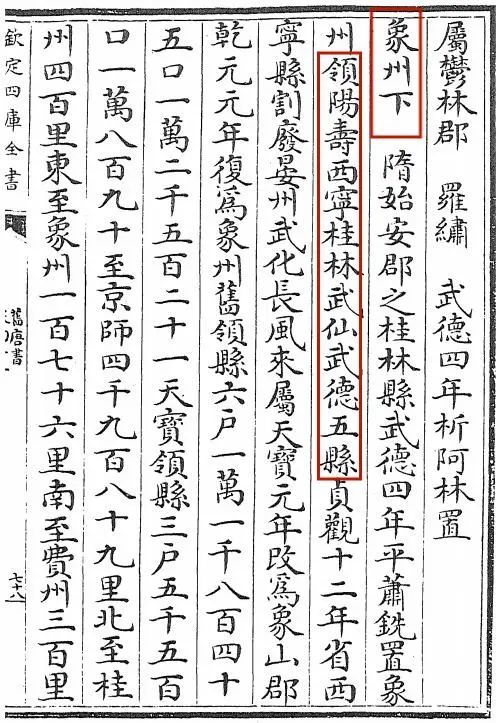 屬鬱林郡 羅繡 武德四年析阿林置
象州下 隋始安郡之桂林縣武德四年平蕭銑置象
州領陽壽西寧桂林武仙武德五縣貞觀十二年省西
寧縣割廢晏州武化長風來屬天寶元年改爲象山郡
乾元元年復爲象州舊領縣六戶一萬一千八百四十
五口一萬二千五百二十一天寶領縣三戶五千五百
口一萬八百九十至京師四千九百八十九里北至桂
州四百里東至象州一百七十六里南至費州三百里
欽定四庫全書
舊唐書
七十八